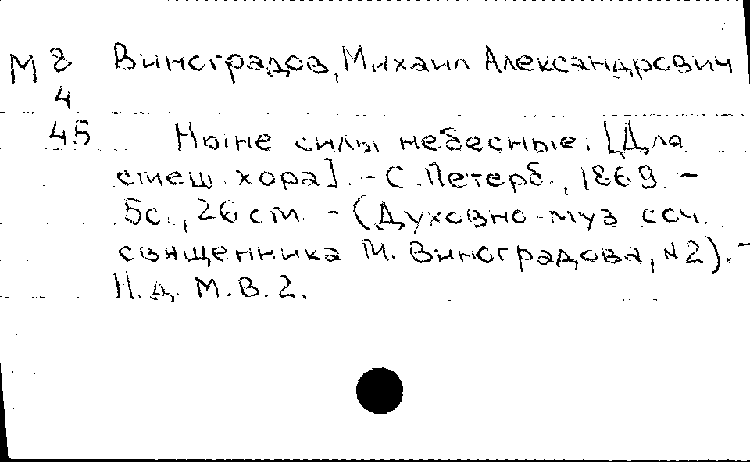 М 8 Виноградов, Михаил Александрович
4
45 Ныне силы небесные. [Для
смеш. хора]. - С. Петерб., 1869. -
5с., 26 см. - (Духовно-муз соч.
священника М. Виноградова, №2). -
Н.д. М.В.2.